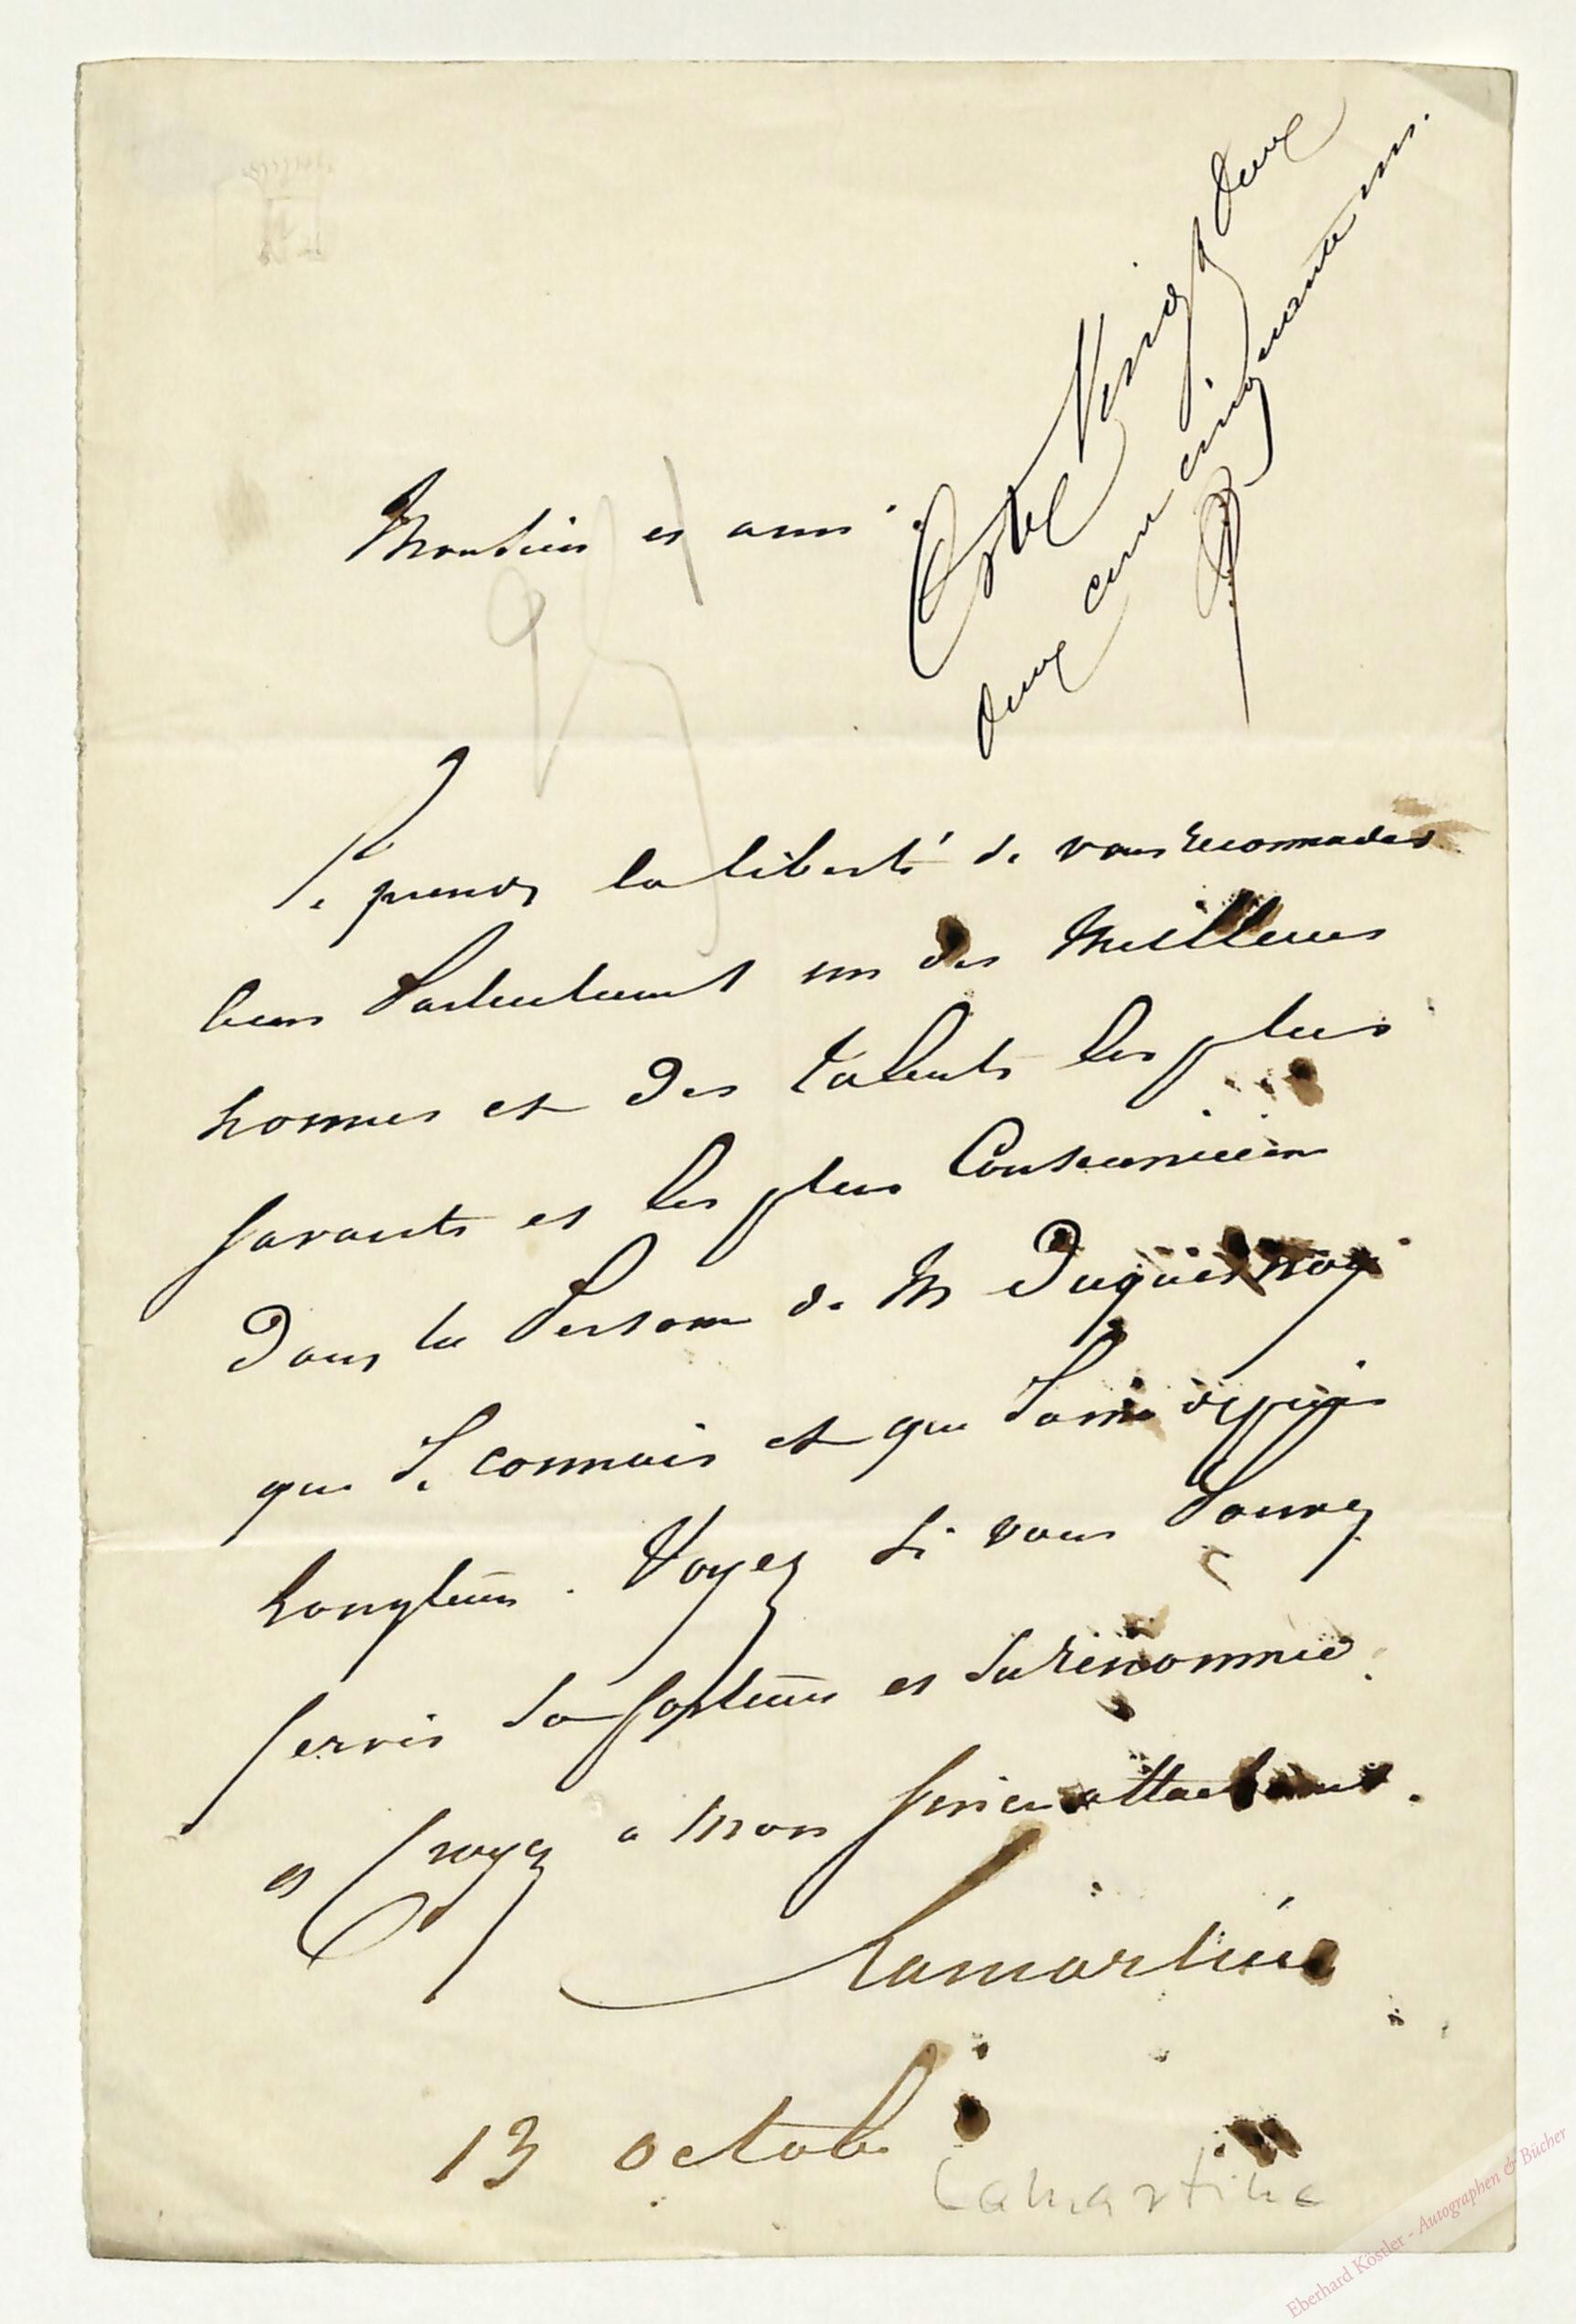 Cote Vingt deux
deux cent cinquante un.
Monsieur et ami
95
Je prends la liberté de vous recomander
bien Particulierement un des Meilleurs
hommes et des talents les plus
savants et les plus Consciencieux
Dans la Personne de M Duquesnoy
que Je connais et que J'aime depuis
longtems. Voyez si vous Pouvez
servir sa fortune et sa renommée.
et Croyez a Mon sincere attachement.
Lamartine
13 octobre
Lamartine
Eberhard Köstler - Autographen & Bücher